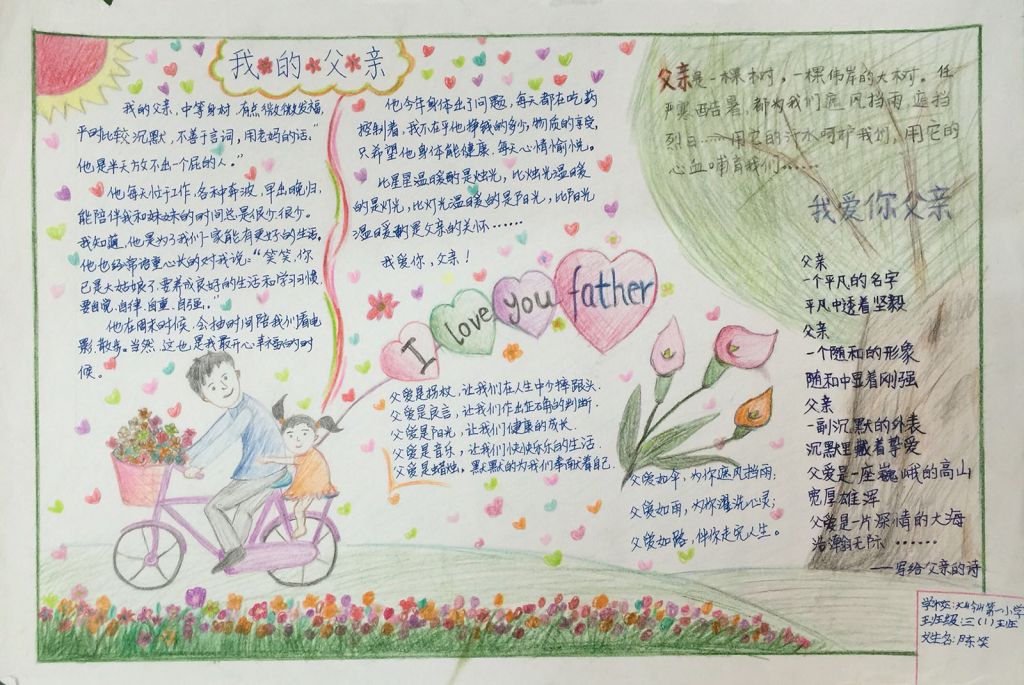 我的父亲
我的父亲,中等身材,有点微微发福,
平时比较沉默,不善于言词,用老妈的话:“
他是半天放不出一个屁的人。”
他每天忙于工作,各种奔波,早出晚归,
能陪伴我和妹妹的时间总是很少很少。
我知道,他是为了我们一家能有更好的生活。
他也经常语重心长的对我说:“笑笑,你
已是大姑娘了,要养成良好的生活和学习习惯,
要自觉、自律、自重、自强。”
他在周末时候,会抽时间陪我们看电
影、散步。当然,这也是我最开心幸福的时
候。
他今年身体出了问题,每天都在吃药
控制着,我不在乎他挣钱的多少,物质的享受,
只希望他身体能健康,每天心情愉悦。
比星星温暖的是烛光,比烛光温暖
的是灯光,比灯光温暖的是阳光,比阳光
温暖的是父亲的关怀……
我爱你,父亲!
I love you father
父爱是拐杖,让我们在人生中少摔跟头.
父爱是良言,让我们作出正确的判断.
父爱是阳光,让我们健康的成长.
父爱是音乐,让我们快快乐乐的生活.
父爱是蜡烛,默默的为我们奉献着自己.
父亲是一棵树,一棵伟岸的大树。任
严寒酷暑,都为我们遮风挡雨,遮挡
烈日……用它的汗水呵护我们,用它的
心血哺育我们……
我爱你父亲
父亲
一个平凡的名字
平凡中透着坚毅
父亲
一个随和的形象
随和中显着刚强
父亲
一副沉默的外表
沉默里藏着挚爱
父爱是一座巍峨的高山
宽厚雄浑
父爱是一片深情的大海
浩瀚无际……
——写给父亲的诗
父爱如伞,为你遮风挡雨;
父爱如雨,为你濯洗心灵;
父爱如路,伴你走完人生。
学校:大仙第一小学
班级:三(1)班
姓名:陈笑